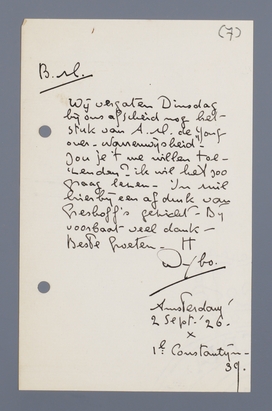 (7)
B.M.
Wij vergaten Dinsdag
bij ons afscheid nog het
stuk van A.M. de Jong
over
Zou je 't me willen toe-
zenden? ik wil het zoo
graag lezen -
hierbij een afdruk van
Greshoff's gedicht - Bij
voorbaat veel dank -
Beste groeten -
Amsterdam
2 Sept. '26.
x
1e Constantijn-
39.